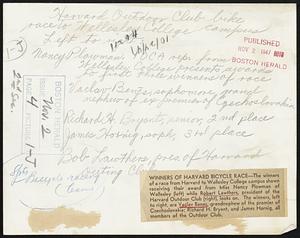 Harvard Outdoor Club bike
race to Wellesley College campus
Left to
Nancy Plowman, OCA rep. from
Wellesley College presents awards
to first three winners of race
Vaclav Benes, sophomore, grand
nephew of ex-premier of Czechoslovakia
Richard H. Bryant, senior, 2nd place
James Hornig, soph, 3rd place
Bob Lawthers, pres. of Harvard
Outing Club
PUBLISHED
NOV 2 1947
BOSTON HERALD
BOSTON HERALD
ISSUE
Nov 2
PAGE
2nd Sec.
WINNERS OF HARVARD BICYCLE RACE—The winners
of a race from Harvard to Wellesley College campus shown
receiving their award from Miss Nancy Plowman of
Wellesley (left) while Robert Lawthers, president of the
Harvard Outdoor Club (right), looks on. The winners, left
to right, are Vaclav Benes, grandnephew of the premier of
Czechoslovakia; Richard H. Bryant, and James Hornig, all
members of the Outdoor Club.